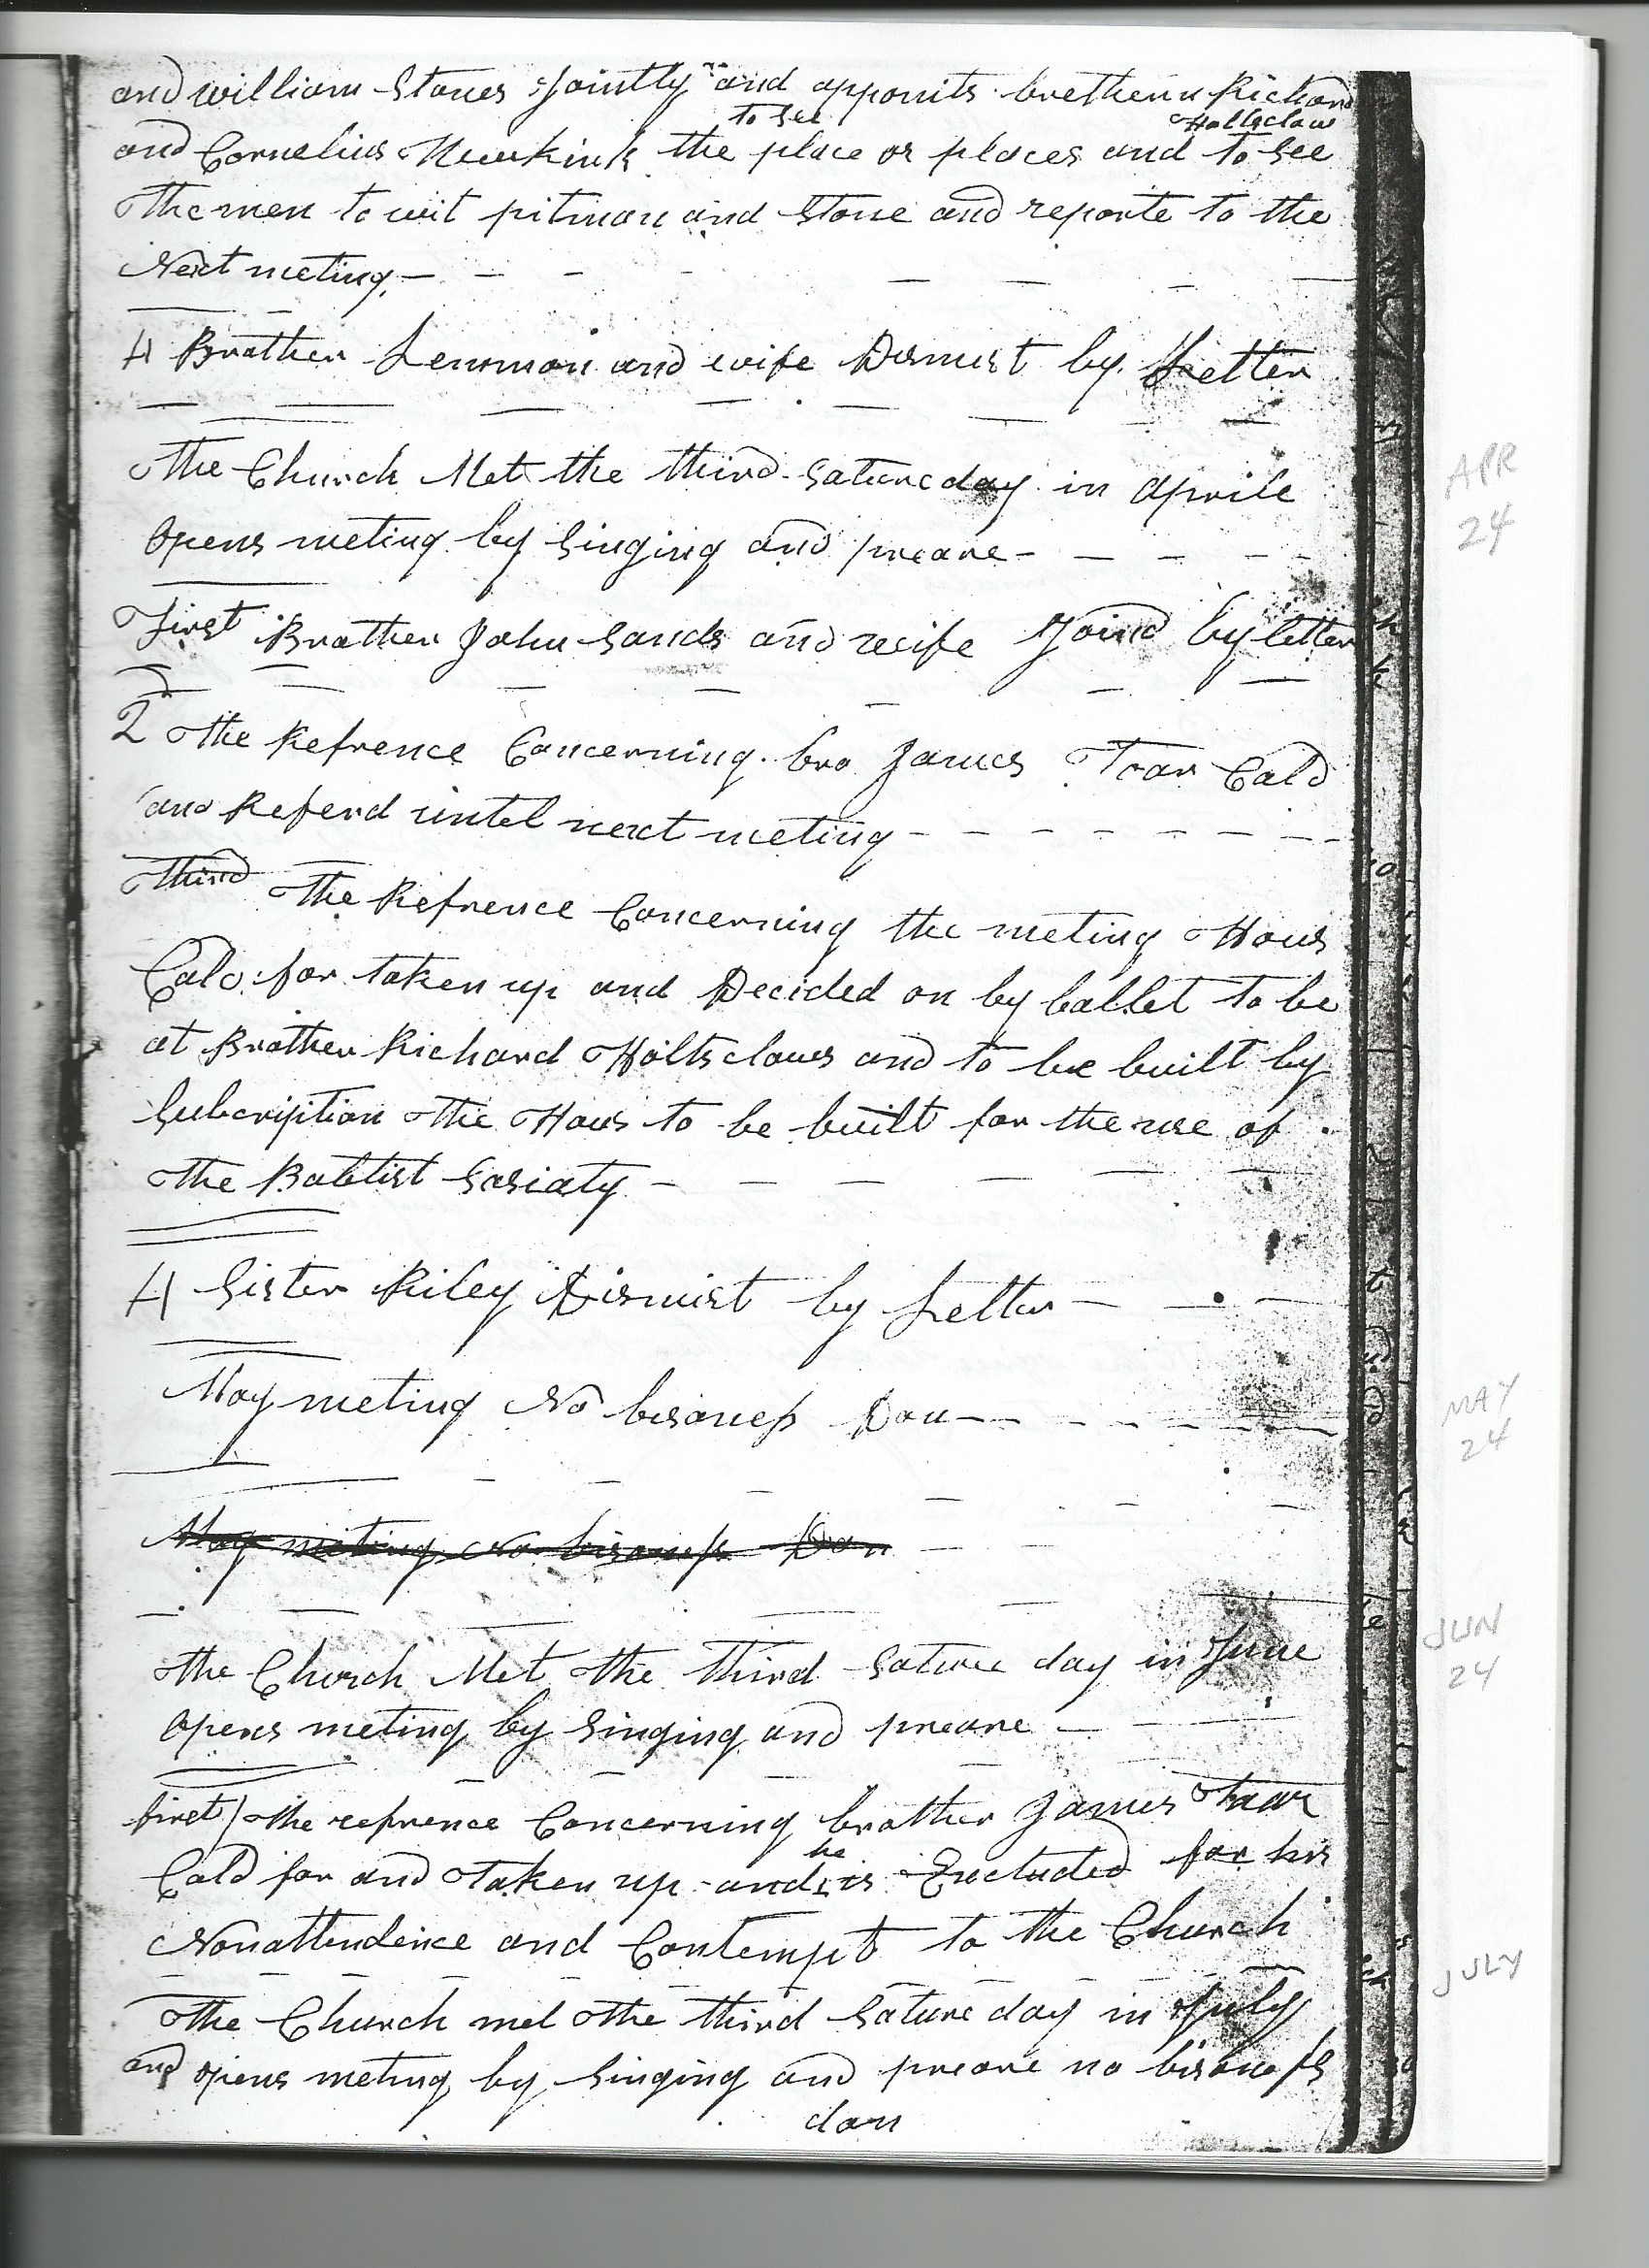 and william Stones Jointly and appoints brethern Richard
to see Holtsclaw
and Cornelius Newkirk the place or places and to see
the men to wit pitman and Stone and reporte to the
Next meting
4 Brother Lemmon and wife Dismist by Letter
The Church Met the third Sature day in Aprile
opens meting by Singing and preare
First Brother John Sands and wife Joind by letter
2 The Refrence Concerning bro James Toar Cald
and Referd untel next meting
Third The Refrence Concerning the meting Hous
Cald for taken up and Decided on by ballet to be
at Brother Richard Holtsclaws and to be built by
Subcription the Hous to be built for the use of
the Babtist Sosiaty
4 Sister Riley Dismist by Letter
May meting No bisoness Don
May meting No bisoness Don
the Church Met the third Sature day in June
opens meting by Singing and preare
first) the refrence Concerning brother James
he
Cald for and taken up and is Excluded for his
Nonattendence and Contempt to the Church
The Church met the third Sature day in July
and opens meting by Singing and preare no bisoness
don
APR
24
MAY
24
JUN
24
JULY